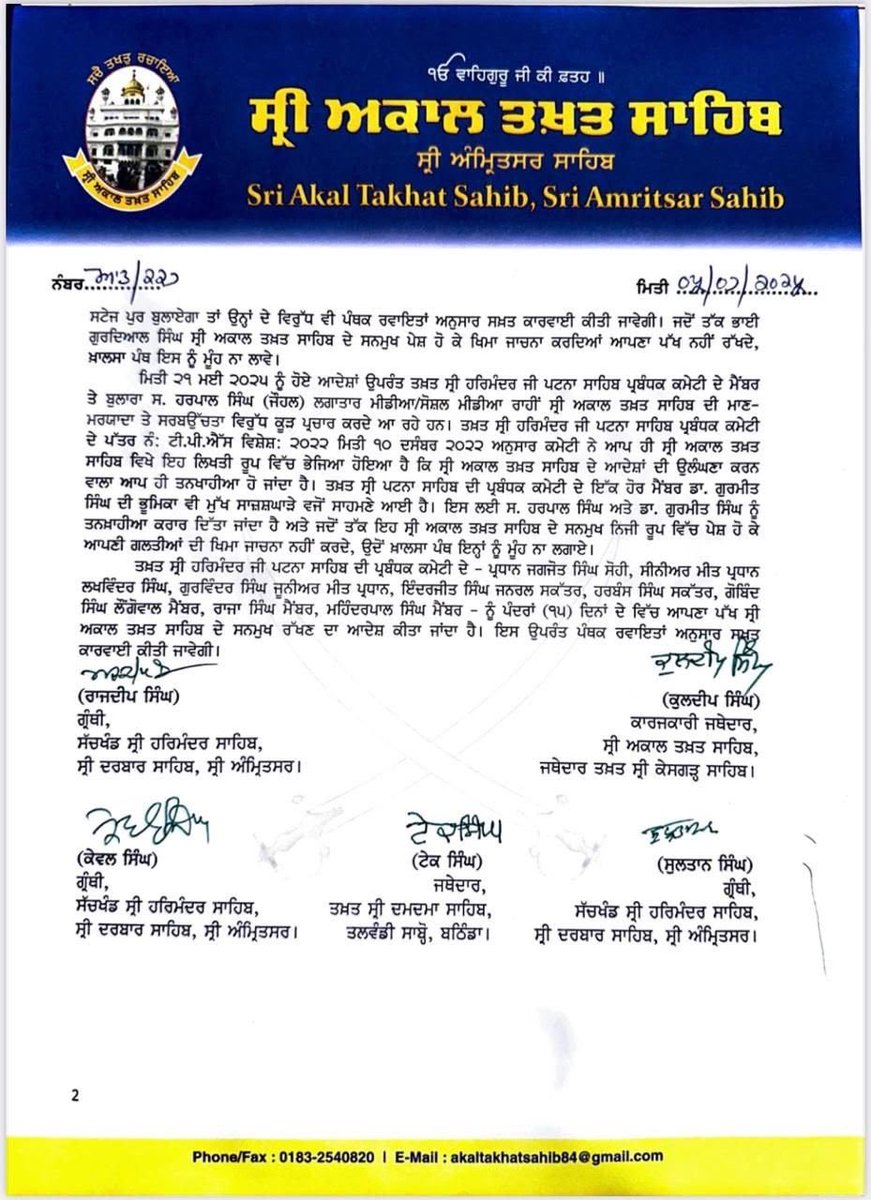 ਸਚੈ ਤਖਤੁ ਰਚਾਇਆ
ਸ੍ਰੀ ਅਕਾਲ ਤਖ਼ਤ ਸਾਹਿਬ
ੴ ਵਾਹਿਗੁਰੂ ਜੀ ਕੀ ਫ਼ਤਹ ॥
ਸ੍ਰੀ ਅਕਾਲ ਤਖ਼ਤ ਸਾਹਿਬ
ਸ੍ਰੀ ਅੰਮ੍ਰਿਤਸਰ ਸਾਹਿਬ
Sri Akal Takhat Sahib, Sri Amritsar Sahib
ਨੰਬਰ ਅ:ਤ/੨੨੦
ਮਿਤੀ ੦੫/੦੭/੨੦੨੫
ਸਟੇਜ ਪੁਰ ਬੁਲਾਏਗਾ ਤਾਂ ਉਨ੍ਹਾਂ ਦੇ ਵਿਰੁੱਧ ਵੀ ਪੰਥਕ ਰਵਾਇਤਾਂ ਅਨੁਸਾਰ ਸਖ਼ਤ ਕਾਰਵਾਈ ਕੀਤੀ ਜਾਵੇਗੀ। ਜਦੋਂ ਤੱਕ ਭਾਈ
ਗੁਰਦਿਆਲ ਸਿੰਘ ਸ੍ਰੀ ਅਕਾਲ ਤਖ਼ਤ ਸਾਹਿਬ ਦੇ ਸਨਮੁਖ ਪੇਸ਼ ਹੋ ਕੇ ਖਿਮਾ ਜਾਚਨਾ ਕਰਦਿਆਂ ਆਪਣਾ ਪੱਖ ਨਹੀਂ ਰੱਖਦੇ,
ਖ਼ਾਲਸਾ ਪੰਥ ਇਸ ਨੂੰ ਮੂੰਹ ਨਾ ਲਾਵੇ।
ਮਿਤੀ ੨੧ ਮਈ ੨੦੨੫ ਨੂੰ ਹੋਏ ਆਦੇਸ਼ਾਂ ਉਪਰੰਤ ਤਖ਼ਤ ਸ੍ਰੀ ਹਰਿਮੰਦਰ ਜੀ ਪਟਨਾ ਸਾਹਿਬ ਪ੍ਰਬੰਧਕ ਕਮੇਟੀ ਦੇ ਮੈਂਬਰ
ਤੇ ਬੁਲਾਰਾ ਸ. ਹਰਪਾਲ ਸਿੰਘ (ਜੌਹਲ) ਲਗਾਤਾਰ ਮੀਡੀਆ/ਸੋਸ਼ਲ ਮੀਡੀਆ ਰਾਹੀਂ ਸ੍ਰੀ ਅਕਾਲ ਤਖ਼ਤ ਸਾਹਿਬ ਦੀ ਮਾਣ-
ਮਰਯਾਦਾ ਤੇ ਸਰਬਉੱਚਤਾ ਵਿਰੁੱਧ ਕੂੜ ਪ੍ਰਚਾਰ ਕਰਦੇ ਆ ਰਹੇ ਹਨ। ਤਖ਼ਤ ਸ੍ਰੀ ਹਰਿਮੰਦਰ ਜੀ ਪਟਨਾ ਸਾਹਿਬ ਪ੍ਰਬੰਧਕ ਕਮੇਟੀ
ਦੇ ਪੱਤਰ ਨੰ: ਟੀ.ਪੀ.ਐੱਸ ਵਿਸ਼ੇਸ਼: ੨੦੨੨ ਮਿਤੀ ੧੦ ਦਸੰਬਰ ੨੦੨੨ ਅਨੁਸਾਰ ਕਮੇਟੀ ਨੇ ਆਪ ਹੀ ਸ੍ਰੀ ਅਕਾਲ ਤਖ਼ਤ
ਸਾਹਿਬ ਵਿਖੇ ਇਹ ਲਿਖਤੀ ਰੂਪ ਵਿੱਚ ਭੇਜਿਆ ਹੋਇਆ ਹੈ ਕਿ ਸ੍ਰੀ ਅਕਾਲ ਤਖ਼ਤ ਸਾਹਿਬ ਦੇ ਆਦੇਸ਼ਾਂ ਦੀ ਉਲੰਘਣਾ ਕਰਨ
ਵਾਲਾ ਆਪ ਹੀ ਤਨਖਾਹੀਆ ਹੋ ਜਾਂਦਾ ਹੈ। ਤਖ਼ਤ ਸ੍ਰੀ ਪਟਨਾ ਸਾਹਿਬ ਦੀ ਪ੍ਰਬੰਧਕ ਕਮੇਟੀ ਦੇ ਇੱਕ ਹੋਰ ਮੈਂਬਰ ਡਾ. ਗੁਰਮੀਤ
ਸਿੰਘ ਦੀ ਭੂਮਿਕਾ ਵੀ ਮੁੱਖ ਸਾਜ਼ਸ਼ਘਾੜੇ ਵਜੋਂ ਸਾਹਮਣੇ ਆਈ ਹੈ। ਇਸ ਲਈ ਸ. ਹਰਪਾਲ ਸਿੰਘ ਅਤੇ ਡਾ. ਗੁਰਮੀਤ ਸਿੰਘ ਨੂੰ
ਤਨਖ਼ਾਹੀਆ ਕਰਾਰ ਦਿੱਤਾ ਜਾਂਦਾ ਹੈ ਅਤੇ ਜਦੋਂ ਤੱਕ ਇਹ ਸ੍ਰੀ ਅਕਾਲ ਤਖ਼ਤ ਸਾਹਿਬ ਦੇ ਸਨਮੁਖ ਨਿਜੀ ਰੂਪ ਵਿੱਚ ਪੇਸ਼ ਹੋ ਕੇ
ਆਪਣੀ ਗਲਤੀਆਂ ਦੀ ਖਿਮਾ ਜਾਚਨਾ ਨਹੀਂ ਕਰਦੇ, ਉਦੋਂ ਖ਼ਾਲਸਾ ਪੰਥ ਇਨ੍ਹਾਂ ਨੂੰ ਮੂੰਹ ਨਾ ਲਗਾਏ।
ਤਖ਼ਤ ਸ੍ਰੀ ਹਰਿਮੰਦਰ ਜੀ ਪਟਨਾ ਸਾਹਿਬ ਦੀ ਪ੍ਰਬੰਧਕ ਕਮੇਟੀ ਦੇ - ਪ੍ਰਧਾਨ ਜਗਜੋਤ ਸਿੰਘ ਸੋਹੀ, ਸੀਨੀਅਰ ਮੀਤ ਪ੍ਰਧਾਨ
ਲਖਵਿੰਦਰ ਸਿੰਘ, ਗੁਰਵਿੰਦਰ ਸਿੰਘ ਜੂਨੀਅਰ ਮੀਤ ਪ੍ਰਧਾਨ, ਇੰਦਰਜੀਤ ਸਿੰਘ ਜਨਰਲ ਸਕੱਤਰ, ਹਰਬੰਸ ਸਿੰਘ ਸਕੱਤਰ, ਗੋਬਿੰਦ
ਸਿੰਘ ਲੌਂਗੋਵਾਲ ਮੈਂਬਰ, ਰਾਜਾ ਸਿੰਘ ਮੈਂਬਰ, ਮਹਿੰਦਰਪਾਲ ਸਿੰਘ ਮੈਂਬਰ - ਨੂੰ ਪੰਦਰਾਂ (੧੫) ਦਿਨਾਂ ਦੇ ਵਿੱਚ ਆਪਣਾ ਪੱਖ ਸ੍ਰੀ
ਅਕਾਲ ਤਖ਼ਤ ਸਾਹਿਬ ਦੇ ਸਨਮੁਖ ਰੱਖਣ ਦਾ ਆਦੇਸ਼ ਕੀਤਾ ਜਾਂਦਾ ਹੈ। ਇਸ ਉਪਰੰਤ ਪੰਥਕ ਰਵਾਇਤਾਂ ਅਨੁਸਾਰ ਸਖ਼ਤ
ਕਾਰਵਾਈ ਕੀਤੀ ਜਾਵੇਗੀ।
ਕੁਲਦੀਪ ਸਿੰਘ
(ਰਾਜਦੀਪ ਸਿੰਘ)
(ਕੁਲਦੀਪ ਸਿੰਘ)
ਗ੍ਰੰਥੀ,
ਕਾਰਜਕਾਰੀ ਜਥੇਦਾਰ,
ਸੱਚਖੰਡ ਸ੍ਰੀ ਹਰਿਮੰਦਰ ਸਾਹਿਬ,
ਸ੍ਰੀ ਅਕਾਲ ਤਖ਼ਤ ਸਾਹਿਬ,
ਸ੍ਰੀ ਦਰਬਾਰ ਸਾਹਿਬ, ਸ੍ਰੀ ਅੰਮ੍ਰਿਤਸਰ।
ਜਥੇਦਾਰ ਤਖ਼ਤ ਸ੍ਰੀ ਕੇਸਗੜ੍ਹ ਸਾਹਿਬ।
ਟੇਕ ਸਿੰਘ
(ਕੇਵਲ ਸਿੰਘ)
(ਟੇਕ ਸਿੰਘ)
(ਸੁਲਤਾਨ ਸਿੰਘ)
ਗ੍ਰੰਥੀ,
ਜਥੇਦਾਰ,
ਗ੍ਰੰਥੀ,
ਸੱਚਖੰਡ ਸ੍ਰੀ ਹਰਿਮੰਦਰ ਸਾਹਿਬ,
ਤਖ਼ਤ ਸ੍ਰੀ ਦਮਦਮਾ ਸਾਹਿਬ,
ਸੱਚਖੰਡ ਸ੍ਰੀ ਹਰਿਮੰਦਰ ਸਾਹਿਬ,
ਸ੍ਰੀ ਦਰਬਾਰ ਸਾਹਿਬ, ਸ੍ਰੀ ਅੰਮ੍ਰਿਤਸਰ।
ਤਲਵੰਡੀ ਸਾਬ੍ਹੋ, ਬਠਿੰਡਾ।
ਸ੍ਰੀ ਦਰਬਾਰ ਸਾਹਿਬ, ਸ੍ਰੀ ਅੰਮ੍ਰਿਤਸਰ।
2
Phone/Fax : 0183-2540820 | E-Mail : akaltakhatsahib84@gmail.com